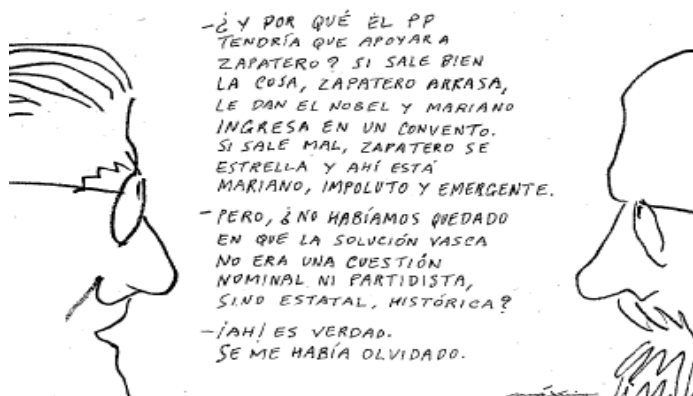 -¿Y POR QUÉ EL PP
TENDRÍA QUE APOYAR A
ZAPATERO? SI SALE BIEN
LA COSA, ZAPATERO ARRASA,
LE DAN EL NOBEL Y MARIANO
INGRESA EN UN CONVENTO.
SI SALE MAL, ZAPATERO SE
ESTRELLA Y AHÍ ESTÁ
MARIANO, IMPOLUTO Y EMERGENTE.
-PERO, ¿NO HABÍAMOS QUEDADO
EN QUE LA SOLUCIÓN VASCA
NO ERA UNA CUESTIÓN
NOMINAL NI PARTIDISTA,
SINO ESTATAL, HISTÓRICA?
-¡AH! ES VERDAD.
SE ME HABÍA OLVIDADO.